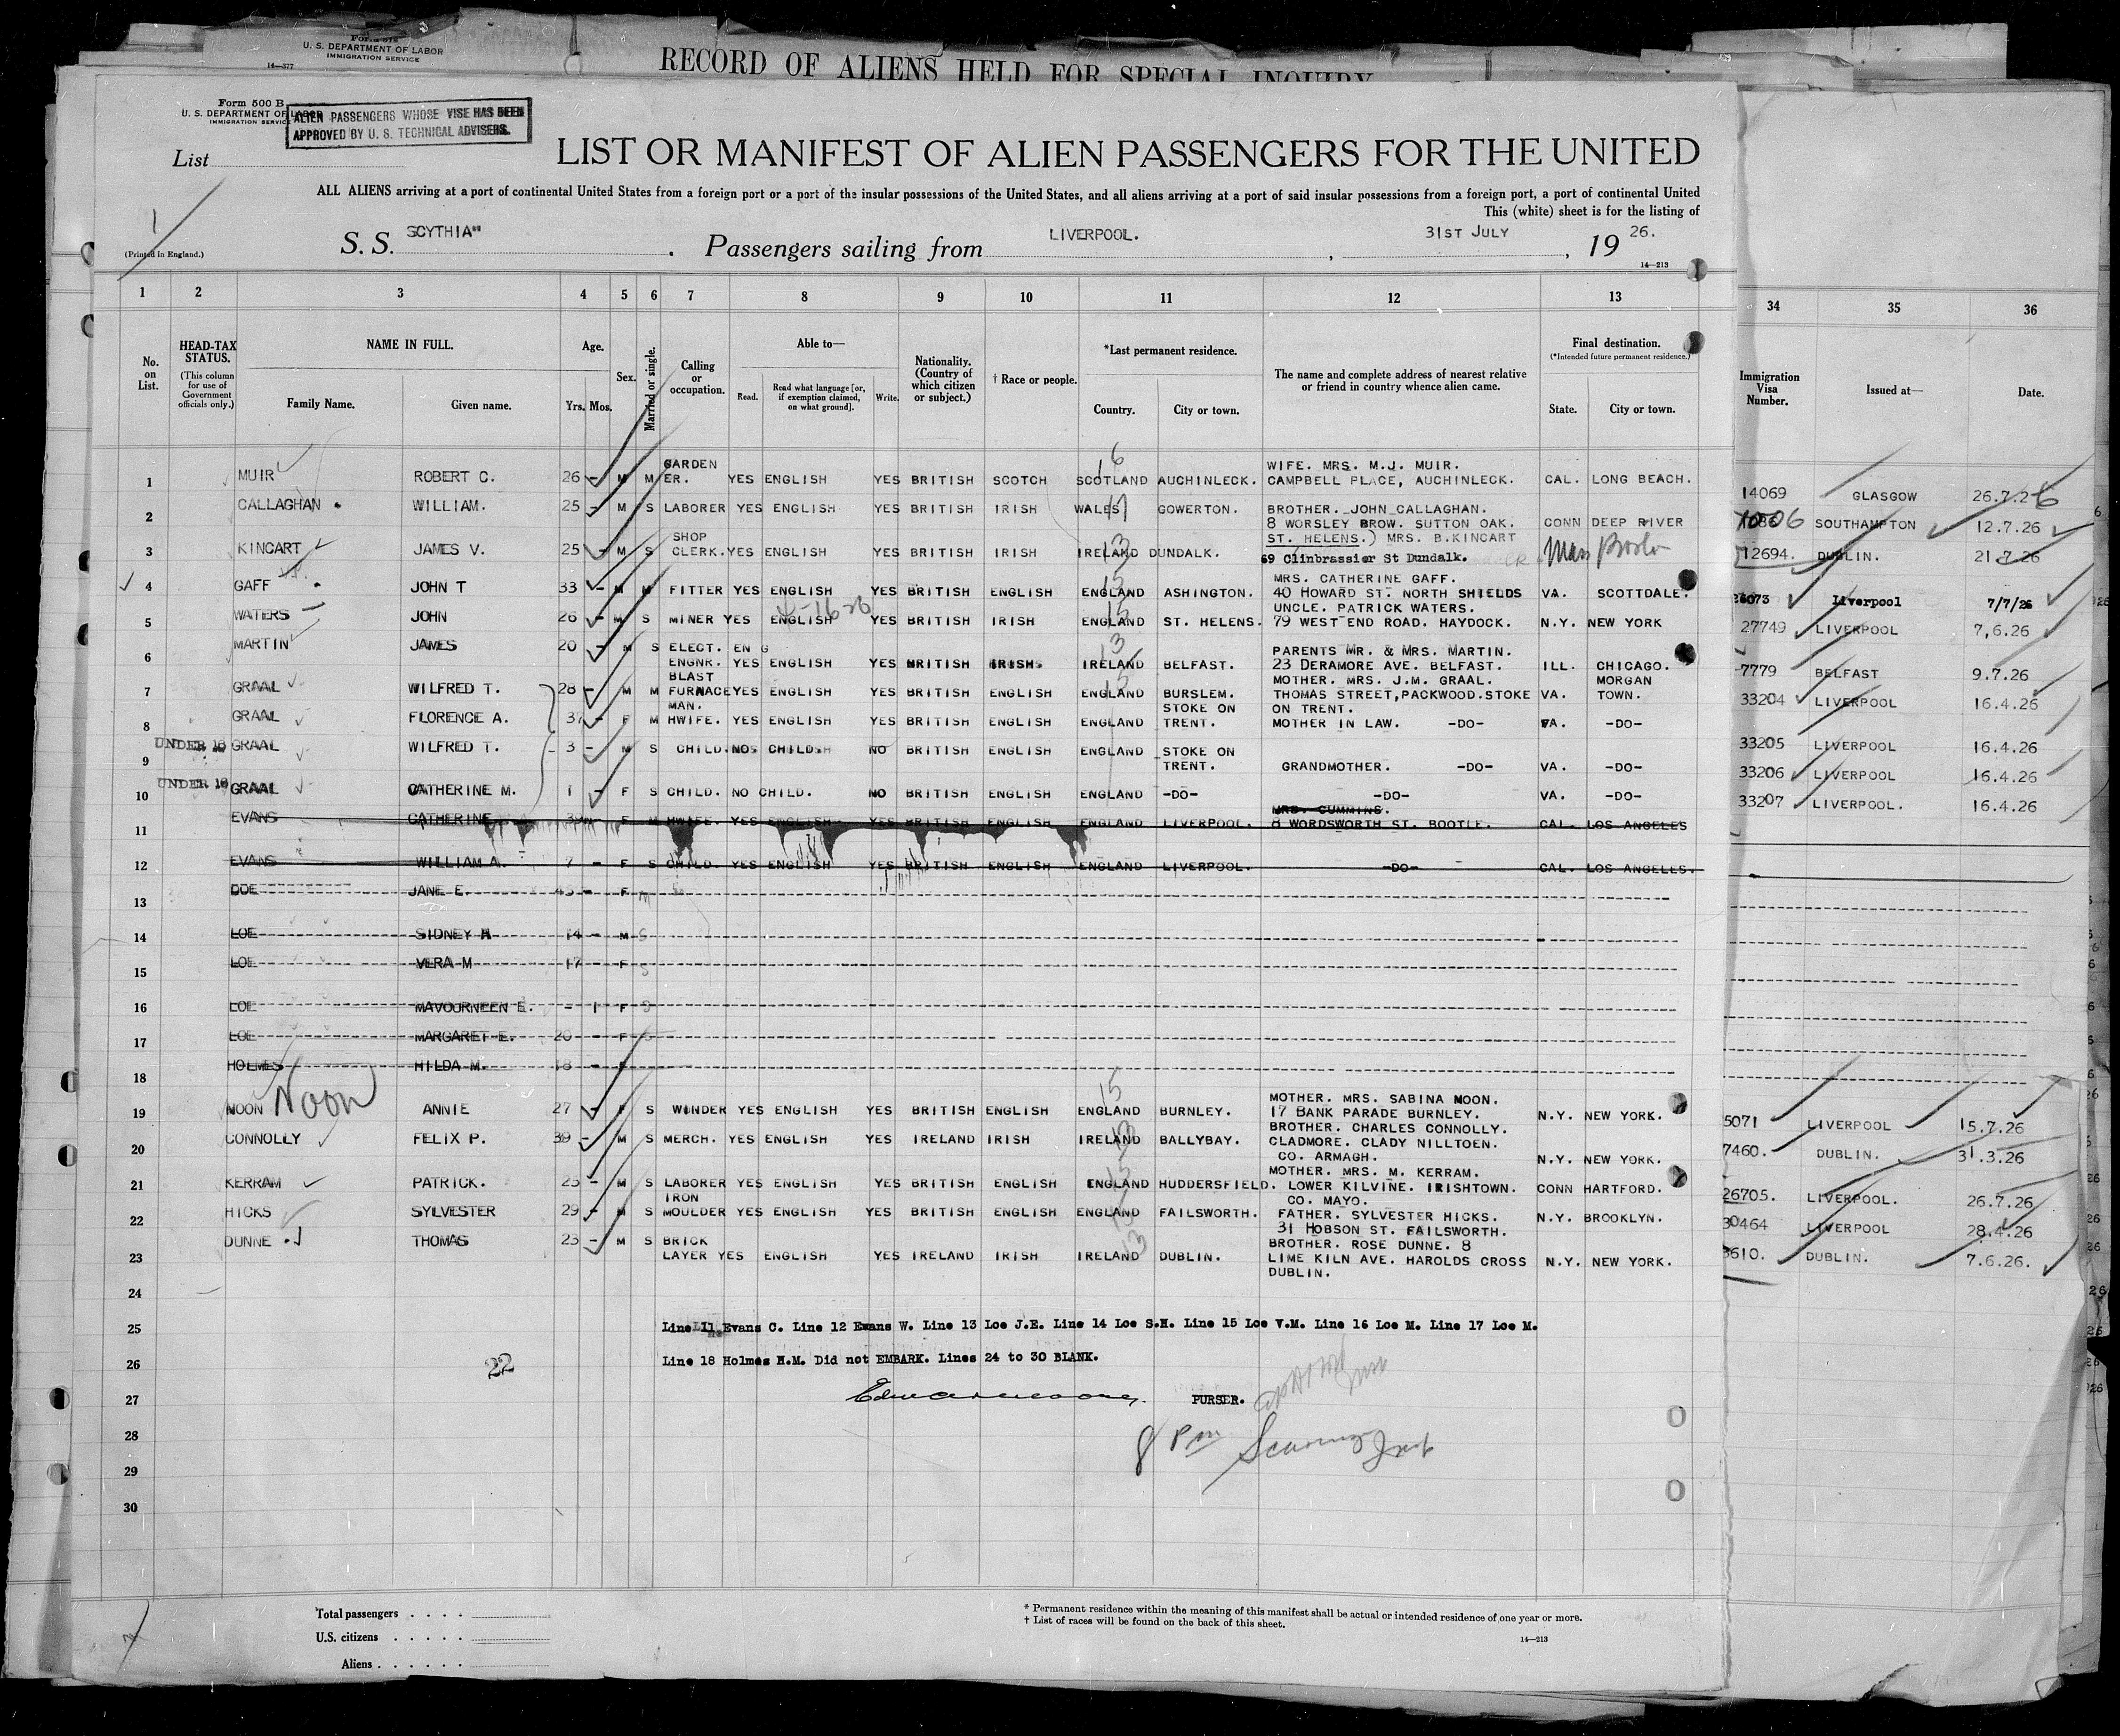 Form
U. S. DEPARTMENT OF LABOR
IMMIGRATION SERVICE
14—377
RECORD OF ALIENS HELD FOR SPECIAL INQUIRY
Form 500 B
U. S. DEPARTMENT OF LABOR
IMMIGRATION SERVICE
ALIEN PASSENGERS WHOSE VISE HAS BEEN
APPROVED BY U. S. TECHNICAL ADVISERS.
List
1
LIST OR MANIFEST OF ALIEN PASSENGERS FOR THE UNITED
ALL ALIENS arriving at a port of continental United States from a foreign port or a port of the insular possessions of the United States, and all aliens arriving at a port of said insular possessions from a foreign port, a port of continental United
This (white) sheet is for the listing of
(Printed in England.)
S. S. SCYTHIA" . Passengers sailing from LIVERPOOL. , 31ST JULY , 19 26.
14—213
1 2 3 4 5 6 7 8 9 10 11 12 13 34 35 36
No. on List.
HEAD-TAX STATUS.
(This column for use of Government officials only.)
NAME IN FULL.
Family Name. Given name.
Age.
Yrs. Mos.
Sex.
Married or single.
Calling or occupation.
Able to—
Read. Read what language [or, if exemption claimed, on what ground]. Write.
Nationality. (Country of which citizen or subject.)
† Race or people.
*Last permanent residence.
Country. City or town.
The name and complete address of nearest relative or friend in country whence alien came.
Final destination.
(*Intended future permanent residence.)
State. City or town.
Immigration Visa Number.
Issued at—
Date.
1 MUIR ROBERT C. 26 - M M GARDENER. YES ENGLISH YES BRITISH SCOTCH SCOTLAND AUCHINLECK. WIFE. MRS. M.J. MUIR. CAMPBELL PLACE, AUCHINLECK. CAL. LONG BEACH. 14069 GLASGOW 26.7.26
2 CALLAGHAN WILLIAM. 25 - M S LABORER YES ENGLISH YES BRITISH IRISH WALES GOWERTON. BROTHER. JOHN CALLAGHAN. 8 WORSLEY BROW. SUTTON OAK. ST. HELENS.) CONN DEEP RIVER SOUTHAMPTON 12.7.26
3 KINCART JAMES V. 25 - M S SHOP CLERK. YES ENGLISH YES BRITISH IRISH IRELAND DUNDALK. MRS. B.KINCART 69 Clinbrassier St Dundalk. Mass Boston 12694. DUBLIN. 21.7.26
4 GAFF JOHN T 33 - M M FITTER YES ENGLISH YES BRITISH ENGLISH ENGLAND ASHINGTON. MRS. CATHERINE GAFF. 40 HOWARD ST. NORTH SHIELDS VA. SCOTTDALE. 26073 Liverpool 7/7/26
5 WATERS JOHN 26 - M S MINER YES ENGLISH YES BRITISH IRISH ENGLAND ST. HELENS. UNCLE. PATRICK WATERS. 79 WEST END ROAD. HAYDOCK. N.Y. NEW YORK 27749 LIVERPOOL 7,6.26
6 MARTIN JAMES 20 - M S ELECT. ENG ENGNR. YES ENGLISH YES BRITISH IRISH IRELAND BELFAST. PARENTS MR. & MRS. MARTIN. 23 DERAMORE AVE. BELFAST. ILL. CHICAGO. 7779 BELFAST 9.7.26
7 GRAAL WILFRED T. 28 - M M BLAST FURNACE MAN. YES ENGLISH YES BRITISH ENGLISH ENGLAND BURSLEM. MOTHER. MRS. J.M. GRAAL. THOMAS STREET, PACKWOOD. STOKE ON TRENT. VA. MORGAN TOWN. 33204 LIVERPOOL 16.4.26
8 GRAAL FLORENCE A. 37 - F M HWIFE. YES ENGLISH YES BRITISH ENGLISH ENGLAND STOKE ON TRENT. MOTHER IN LAW. -DO- VA. -DO- 33205 LIVERPOOL 16.4.26
UNDER 16
9 GRAAL WILFRED T. 3 - M S CHILD. NO CHILD NO BRITISH ENGLISH ENGLAND STOKE ON TRENT. GRANDMOTHER. -DO- VA. -DO- 33206 LIVERPOOL 16.4.26
UNDER 16
10 GRAAL CATHERINE M. 1 - F S CHILD. NO CHILD. NO BRITISH ENGLISH ENGLAND -DO- -DO- VA. -DO- 33207 LIVERPOOL. 16.4.26
11 EVANS CATHERINE F M HWIFE. YES ENGLISH YES BRITISH ENGLISH ENGLAND LIVERPOOL. MRS. CUMMINS. 8 WORDSWORTH ST. BOOTLE. CAL. LOS ANGELES
12 EVANS WILLIAM A. 7 - F S CHILD. YES ENGLISH YES BRITISH ENGLISH ENGLAND LIVERPOOL. -DO- CAL. LOS ANGELES.
13 DOE JANE E. 45 - F M
14 LOE SIDNEY H 14 - M S
15 LOE VERA M 17 - F S
16 LOE MAVOURNEEN E. - 1 F S
17 LOE MARGARET E. 20 - F S
18 HOLMES HILDA M. 18 - F
19 NOON Noon ANNIE 27 - F S WINDER YES ENGLISH YES BRITISH ENGLISH ENGLAND BURNLEY. MOTHER. MRS. SABINA NOON. 17 BANK PARADE BURNLEY. N.Y. NEW YORK. 5071 LIVERPOOL 15.7.26
20 CONNOLLY FELIX P. 39 - M S MERCH. YES ENGLISH YES IRELAND IRISH IRELAND BALLYBAY. BROTHER. CHARLES CONNOLLY. CLADMORE. CLADY NILLTOEN. CO. ARMAGH. N.Y. NEW YORK. 7460. DUBLIN. 31.3.26
21 KERRAM PATRICK. 25 - M S LABORER YES ENGLISH YES BRITISH ENGLISH ENGLAND HUDDERSFIELD. MOTHER. MRS. M. KERRAM. LOWER KILVINE. IRISHTOWN. CO. MAYO. CONN HARTFORD. 26705. LIVERPOOL. 26.7.26
22 HICKS SYLVESTER 29 - M S IRON MOULDER YES ENGLISH YES BRITISH ENGLISH ENGLAND FAILSWORTH. FATHER. SYLVESTER HICKS. 31 HOBSON ST. FAILSWORTH. N.Y. BROOKLYN. 30464 LIVERPOOL 28.4.26
23 DUNNE THOMAS 23 - M S BRICK LAYER YES ENGLISH YES IRELAND IRISH IRELAND DUBLIN. BROTHER. ROSE DUNNE. 8 LIME KILN AVE. HAROLDS CROSS DUBLIN. N.Y. NEW YORK. 3610. DUBLIN. 7.6.26.
24
25 Line 11 Evans C. Line 12 Evans W. Line 13 Loe J.E. Line 14 Loe S.H. Line 15 Loe V.M. Line 16 Loe M. Line 17 Loe M.
26 22 Line 18 Holmes H.M. Did not EMBARK. Lines 24 to 30 BLANK.
27 PURSER.
28 8 Pm
29
30
Total passengers . . . .
U.S. citizens . . . . .
Aliens . . . . . .
* Permanent residence within the meaning of this manifest shall be actual or intended residence of one year or more.
† List of races will be found on the back of this sheet.
14—213